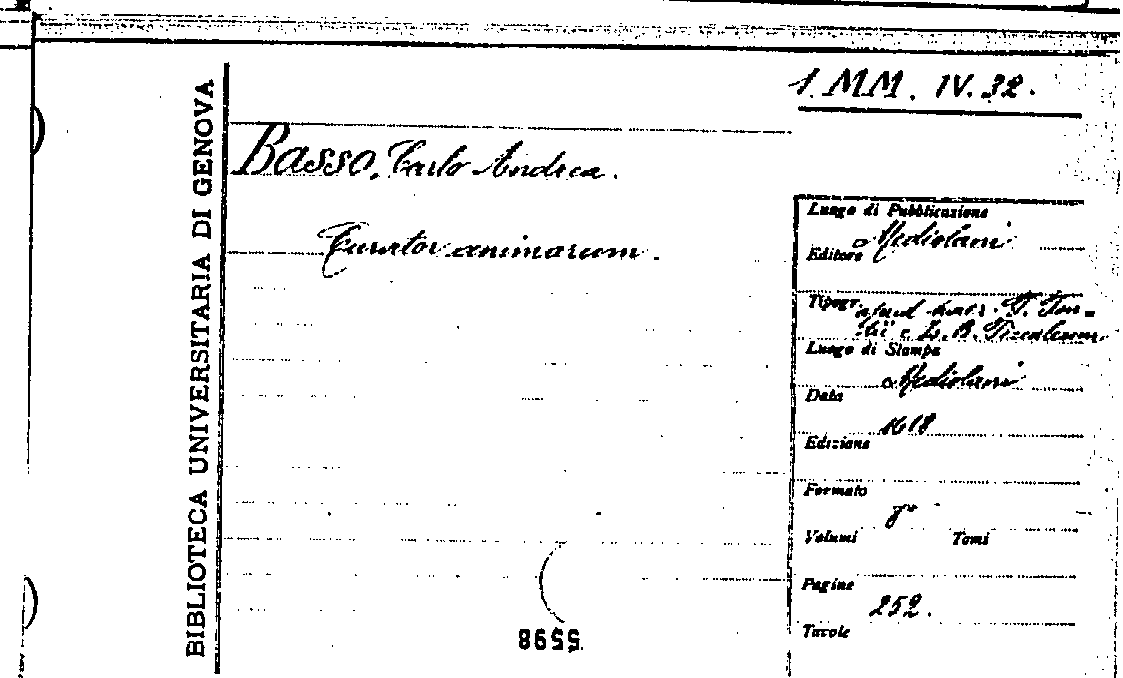 BIBLIOTECA UNIVERSITARIA DI GENOVA
1. MM. IV. 32.
Basso, Carlo Andrea.
Curator animarum.
Luogo di Pubblicazione
Mediolani
Editore
Tipogr. apud haer. P. Pon=
tii e I. B. Piccaleum.
Luogo di Stampa
Mediolani
Data
1618
Edizione
Formato
8°
Volumi Tomi
Pagine
252.
Tavole
5598